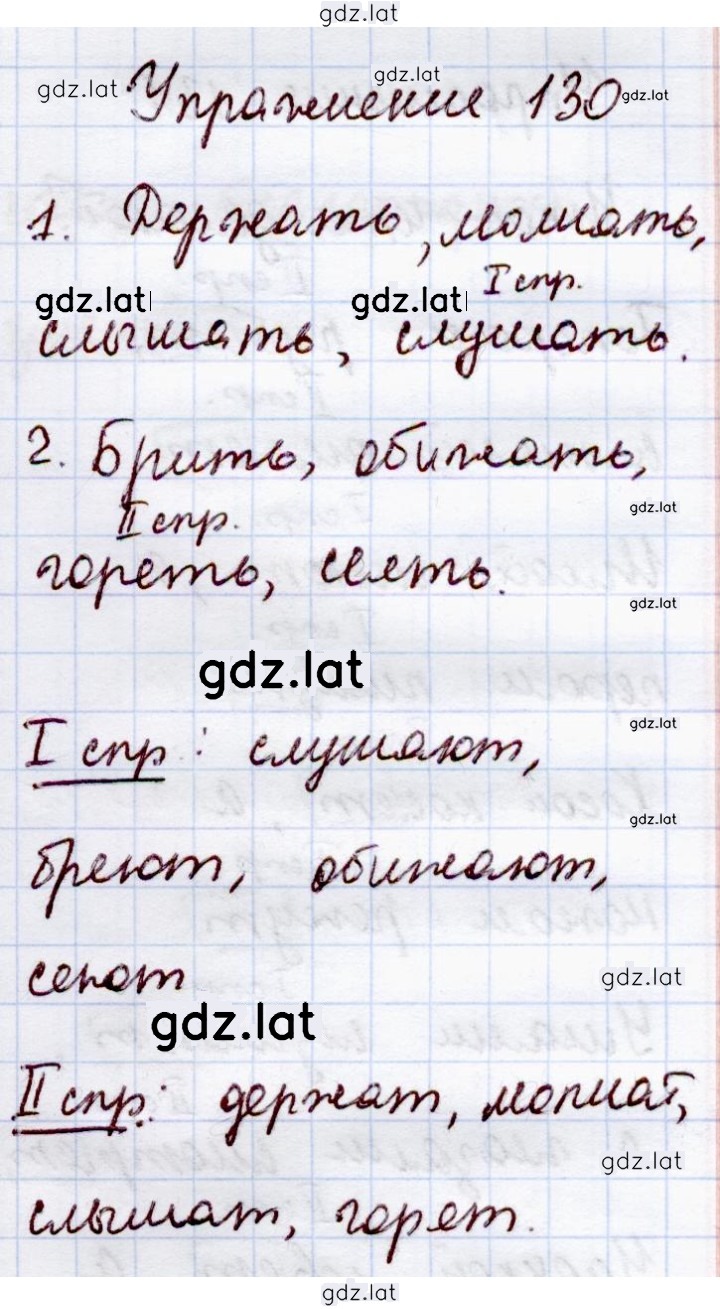 gdz.lat
gdz.lat
gdz.lat Упражнение 130 gdz.lat
1. Держать, молчать,
I спр.
gdz.lat gdz.lat
слышать, слушать.
2. Брить, обижать,
gdz.lat
II спр.
гореть, сеять.
gdz.lat
gdz.lat
gdz.lat
I спр: слушают,
gdz.lat
бреют, обижают,
сеют
gdz.lat
gdz.lat
II спр: держат, молчат,
gdz.lat
слышат, горят.
gdz.lat